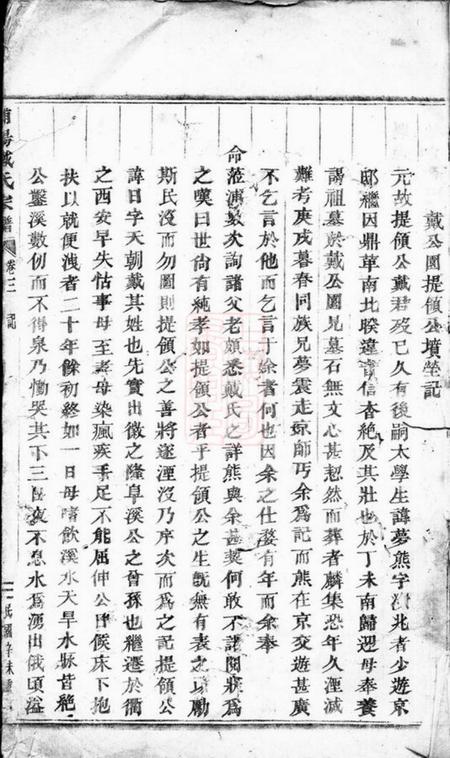 戴公園提領公墳塋記
元故提領公戴君歿已久有後嗣太學生諱夢熊字兆者少遊京
邸繼因鼎革南北睽違音信杳絕及其壯也於丁未南歸迎母奉養
謁祖墓於戴公園見墓石無文心甚恝然而葬者麟集恐年久湮滅
難考庚戌暮春同族兄夢震走京師丐余為記而熊在京交遊甚廣
不乞言於他而乞言于余者何也因余之仕婺有年而余奉
命蒞浦數次詢諸父老頗悉戴氏之詳熊與余甚契何敢不諾閱牒為
之嘆曰世尚有純孝如提領公者乎提領公之生旣無有表之以勵
斯民沒而勿圖則提領公之善將遂湮沒乃序次而為之記提領公
諱日字天朝戴其姓也先實出徽之隆阜溪公之曾孫也繼遷於衢
之西安早失怙事母至壽母染瘋疾手足不能屈伸公日候床下抱
扶以就便溲者二十年餘初終如一日母嗜飲溪水天旱水脉皆絕
公鑿溪數仞而不得泉乃慟哭其下三日夜不息水為湧出俄頃溢
浦陽戴氏宗譜 卷三 記
民國辛未重